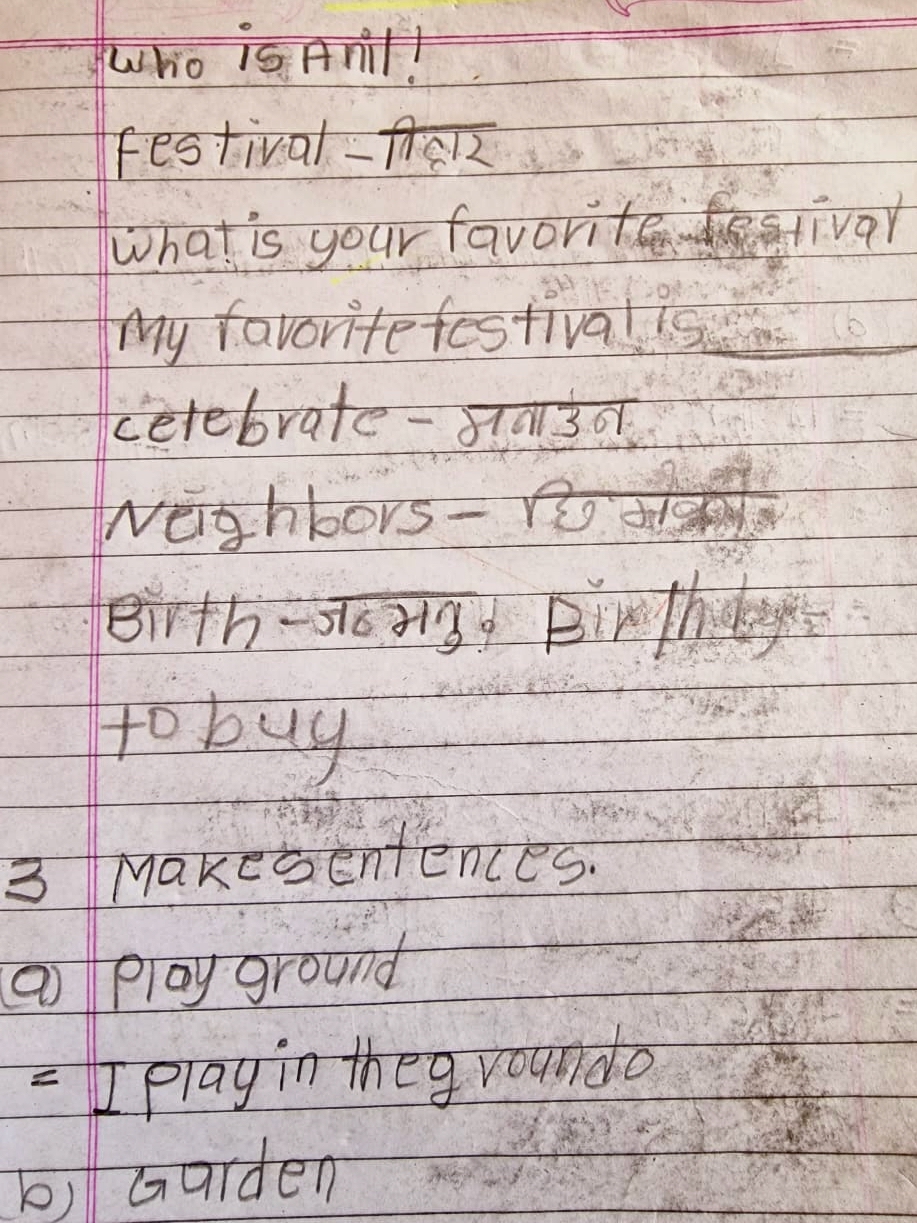 Who is Anil!
festival -
What is your favorite festival
My favorite festival is
celebrate - मनाउन
Neighbors - छिमेकी
Birth - जन्मनु। Birth
to buy
3 Make sentences.
(a) Play ground
= I play in the ground
b) Garden